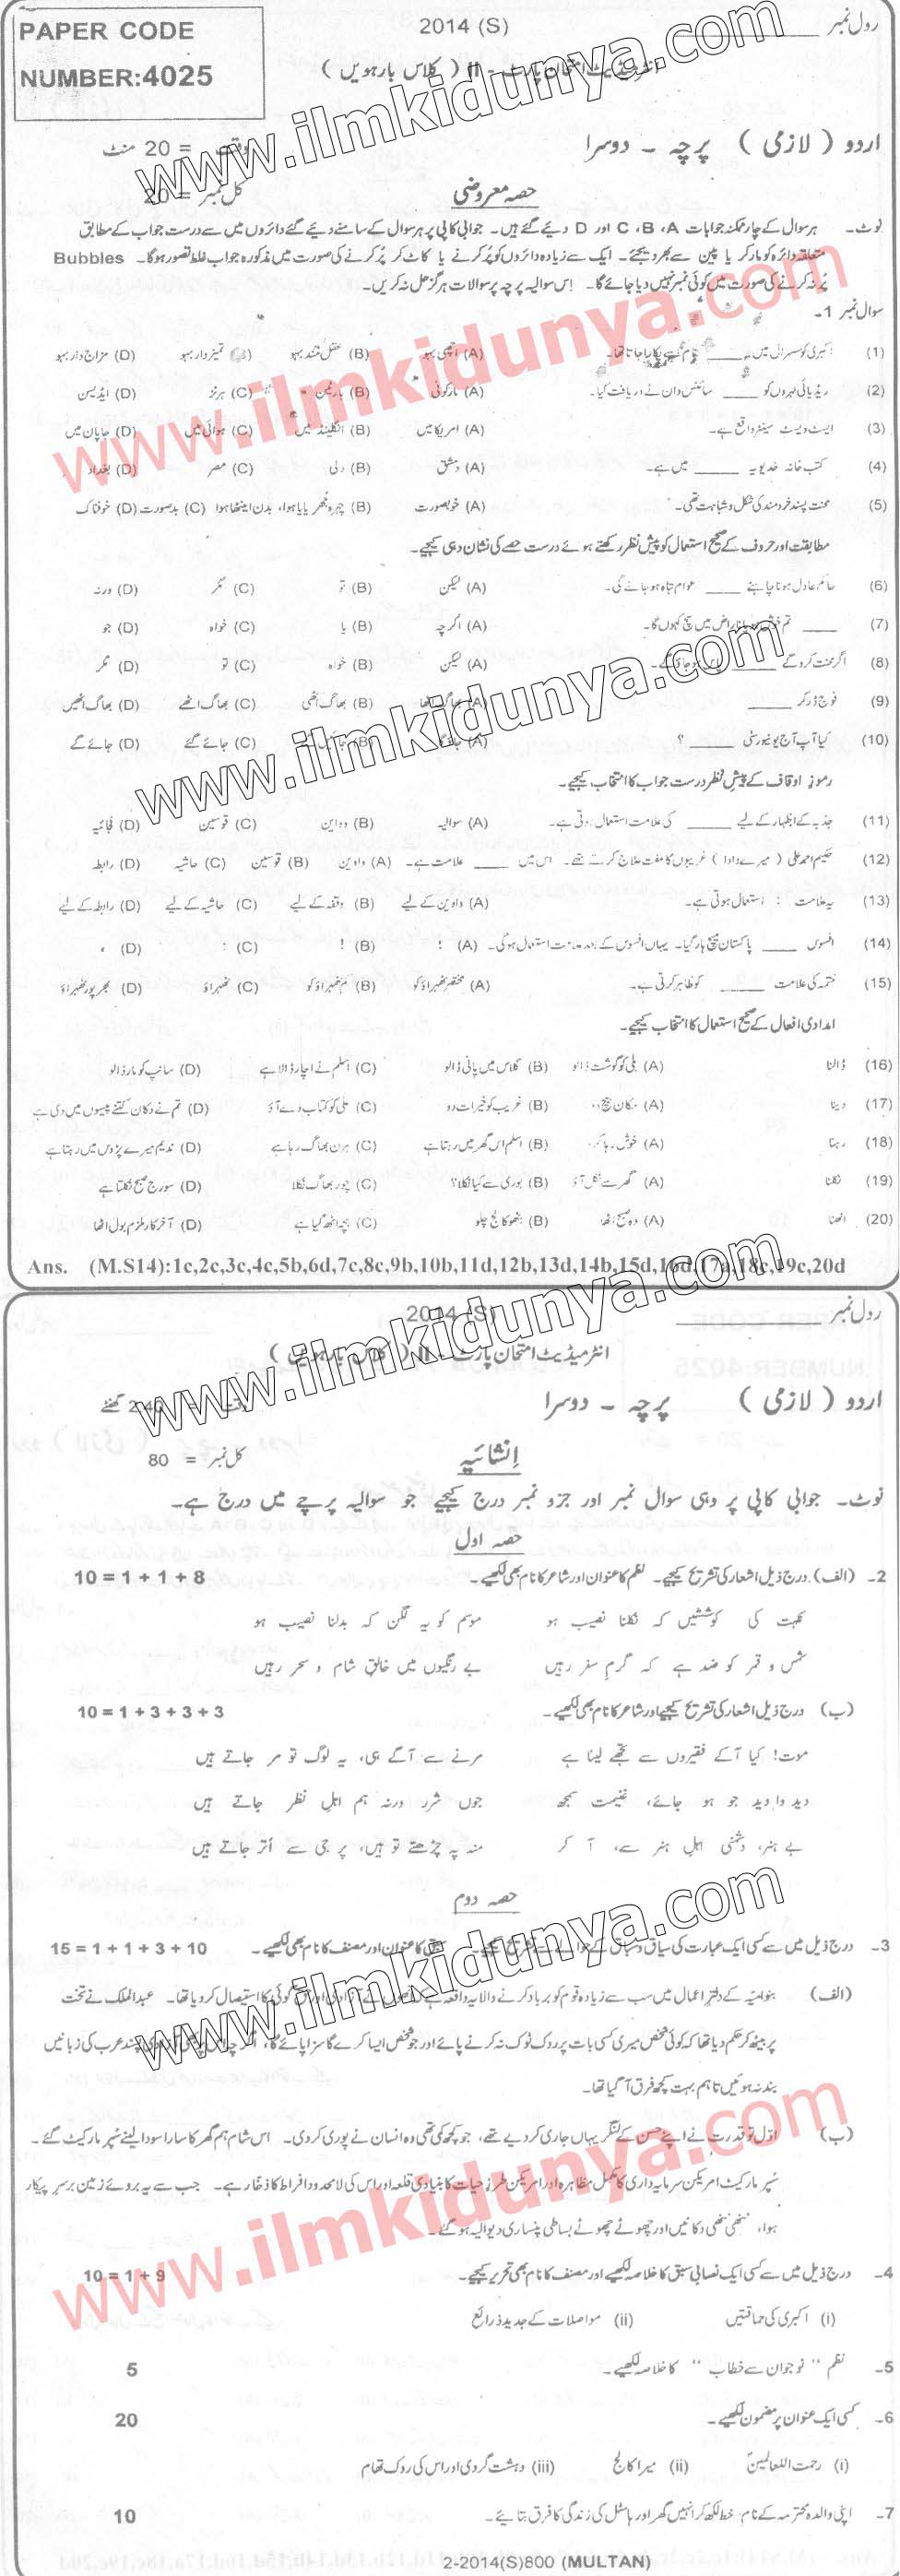 PAPER CODE
NUMBER:4025
2014 (S)
رول نمبر
انٹرمیڈیٹ امتحان پارٹ - II ( کلاس بارہویں )
اردو ( لازمی ) پرچہ - دوسرا
وقت = 20 منٹ
حصہ معروضی
کل نمبر = 20
نوٹ۔ ہر سوال کے چار ممکنہ جوابات A، B، C اور D دیئے گئے ہیں۔ جوابی کاپی پر ہر سوال کے سامنے دیئے گئے دائروں میں سے درست جواب کے مطابق
متعلقہ دائرہ کو مارکر یا پین سے بھر دیجئے۔ ایک سے زیادہ دائروں کو پُر کرنے یا کاٹ کر پُر کرنے کی صورت میں مذکورہ جواب غلط تصور ہوگا۔ Bubbles
پُر نہ کرنے کی صورت میں کوئی نمبر نہیں دیا جائے گا۔ اِس سوالیہ پرچہ پر سوالات ہرگز حل نہ کریں۔
سوال نمبر 1۔
(1) اکبری کو سسرال میں بہ ____ نام سے پکارا جاتا تھا۔ (A) اچھی بہو (B) عقل مند بہو (C) تمیزدار بہو (D) مزاج دار بہو
(2) ریڈیائی لہروں کو ____ سائنس دان نے دریافت کیا۔ (A) مارکونی (B) (C) ہرٹز (D) ایڈیسن
(3) ایسٹ ویسٹ سینٹر واقع ہے۔ (A) امریکا میں (B) انگلینڈ میں (C) ہوائی میں (D) جاپان میں
(4) کتب خانہ خدیویہ ____ میں ہے۔ (A) دمشق (B) دلی (C) مصر (D) بغداد
(5) محنت پسند خردمند کی شکل و شباہت تھی۔ (A) خوبصورت (B) چہرہ جُھریایا ہوا، بدن اینٹھا ہوا (C) بدصورت (D) خوفناک
مطابقت اور حروف کے صحیح استعمال کو پیش نظر رکھتے ہوئے درست حصے کی نشان دہی کیجیے۔
(6) حاکم عادل ہونا چاہئے ____ عوام تباہ ہو جائے گی۔ (A) لیکن (B) تو (C) مگر (D) ورنہ
(7) ____ تم خوش ہو یا ناراض میں سچ کہوں گا۔ (A) اگرچہ (B) یا (C) خواہ (D) جو
(8) اگر محنت کرو گے ____ پاس ہو جاؤ گے۔ (A) لیکن (B) خواہ (C) تو (D) مگر
(9) فوج ڈر کر ____ (A) بھاگ اٹھا (B) بھاگ اٹھی (C) بھاگ اٹھے (D) بھاگ اٹھیں
(10) کیا آپ آج یونیورسٹی ____ ؟ (A) جاؤ گے (B) جائیں گے (C) جائے گئے (D) جائے گے
رموزِ اوقاف کے پیشِ نظر درست جواب کا انتخاب کیجیے۔
(11) جذبہ کے اظہار کے لیے ____ کی علامت استعمال ہوتی ہے۔ (A) سوالیہ (B) وواین (C) قوسین (D) فجائیہ
(12) حکیم احمد علی ( میرے دادا ) غریبوں کا مفت علاج کرتے تھے۔ اس میں ____ علامت ہے۔ (A) داوین (B) قوسین (C) حاشیہ (D) رابطہ
(13) یہ علامت : استعمال ہوتی ہے۔ (A) داوین کے لیے (B) وقفہ کے لیے (C) حاشیہ کے لیے (D) رابطہ کے لیے
(14) افسوس ____ پاکستان میچ ہار گیا۔ یہاں افسوس کے بعد علامت استعمال ہوگی۔ (A) : (B) ! (C) ؛ (D) ،
(15) ختمہ کی علامت ____ کو ظاہر کرتی ہے۔ (A) مختصر ٹھہراؤ کو (B) کم ٹھہراؤ کو (C) ٹھہراؤ (D) بھرپور ٹھہراؤ
امدادی افعال کے صحیح استعمال کا انتخاب کیجیے۔
(16) ڈالنا (A) بلی کو گوشت ڈالو (B) گلاس میں پانی ڈالو (C) اسلم نے اچار ڈالا ہے (D) سانپ کو مار ڈالو
(17) دینا (A) مکان بیچ دو (B) غریب کو خیرات دو (C) علی کو کتاب دے آؤ (D) تم نے دکان کتنے پیسوں میں دی ہے
(18) رہنا (A) خوش رہا کرو (B) اسلم اس گھر میں رہتا ہے (C) ہرن بھاگ رہا ہے (D) ندیم میرے پڑوس میں رہتا ہے
(19) نکلنا (A) گھر سے نکل آؤ (B) بوری سے کیا نکلا؟ (C) چور بھاگ نکلا (D) سورج صبح نکلتا ہے
(20) اٹھنا (A) وہ صبح اٹھا (B) اٹھو کالج چلو (C) بچہ اٹھ گیا ہے (D) آخرکار ملزم بول اٹھا
Ans. (M.S14):1c,2c,3c,4c,5b,6d,7c,8c,9b,10b,11d,12b,13d,14b,15d,16d,17a,18c,19c,20d
2014 (S)
رول نمبر
انٹرمیڈیٹ امتحان پارٹ - II ( کلاس بارہویں )
اردو ( لازمی ) پرچہ - دوسرا
وقت = 2:40 گھنٹے
اِنشائیہ
کل نمبر = 80
نوٹ۔ جوابی کاپی پر وہی سوال نمبر اور جزو نمبر درج کیجیے جو سوالیہ پرچے میں درج ہے۔
حصہ اول
2۔ (الف) درج ذیل اشعار کی تشریح کیجیے۔ نظم کا عنوان اور شاعر کا نام بھی لکھیے۔ 10 = 1 + 1 + 8
نکہت کی کوششیں کہ نکلنا نصیب ہو موسم کو یہ لگن کہ بدلنا نصیب ہو
شمس و قمر کو ضد ہے کہ گرمِ سفر رہیں بے رنگیوں میں خالقِ شام و سحر رہیں
(ب) درج ذیل اشعار کی تشریح کیجیے اور شاعر کا نام بھی لکھیے۔ 10 = 1 + 3 + 3 + 3
موت! کیا آ کے فقیروں سے تجھے لینا ہے مرنے سے آگے ہی، یہ لوگ تو مر جاتے ہیں
دید وا دید جو ہو جائے، غنیمت سمجھو جوں شرر ورنہ ہم اہلِ نظر جاتے ہیں
بے ہنر، دشمنی اہلِ ہنر سے، آ کر منہ پہ چڑھتے تو ہیں، پر جی سے اُتر جاتے ہیں
حصہ دوم
3۔ درج ذیل میں سے کسی ایک عبارت کی سیاق و سباق کے حوالے سے تشریح کیجیے۔ سبق کا عنوان اور مصنف کا نام بھی لکھیے۔ 15 = 1 + 1 + 3 + 10
(الف) بنو امیہ کے دفترِ اعمال میں سب سے زیادہ قوم کو برباد کرنے والا یہ واقعہ ہے آزادی اور حق گوئی کا استیصال کر دیا تھا۔ عبدالملک نے تخت
پر بیٹھ کر حکم دیا تھا کہ کوئی شخص میری کسی بات پر روک ٹوک نہ کرنے پائے اور جو شخص ایسا کرے گا سزا پائے گا، اگرچہ اس پر بھی آزادی پسند عرب کی زبانیں
بند نہ ہوئیں تاہم بہت کچھ فرق آ گیا تھا۔
(ب) اوّل تو قدرت نے اپنے حسن کے لنگر یہاں جاری کر دیے تھے، جو کچھ کمی تھی وہ انسان نے پوری کر دی۔ اس شام ہم گھر کا سارا سودا لینے سُپر مارکیٹ گئے۔
سُپر مارکیٹ امریکن سرمایہ داری کا مکمل مظاہرہ اور امریکن طرزِ حیات کا بنیادی قلعہ اور اس کی لامحدود افراط کا ذخّار ہے۔ جب سے یہ بروئے زمین برسرِ پیکار
ہوا، ننھی ننھی دکانیں اور چھوٹے چھوٹے بساطی پنساری دیوالیہ ہو گئے۔
4۔ درج ذیل میں سے کسی ایک نصابی سبق کا خلاصہ لکھیے اور مصنف کا نام بھی تحریر کیجیے۔ 10 = 1 + 9
(i) اکبری کی حماقتیں (ii) مواصلات کے جدید ذرائع
5۔ نظم " نوجوان سے خطاب " کا خلاصہ لکھیے۔ 5
6۔ کسی ایک عنوان پر مضمون لکھیے۔ 20
(i) رحمت اللعالمینؐ (ii) میرا کالج (iii) دہشت گردی اور اس کی روک تھام
7۔ اپنی والدہ محترمہ کے نام خط لکھ کر انہیں گھر اور ہاسٹل کی زندگی کا فرق بتائیے۔ 10
2-2014(S)800 (MULTAN)
www.ilmkidunya.com
www.ilmkidunya.com
www.ilmkidunya.com
www.ilmkidunya.com
www.ilmkidunya.com
www.ilmkidunya.com